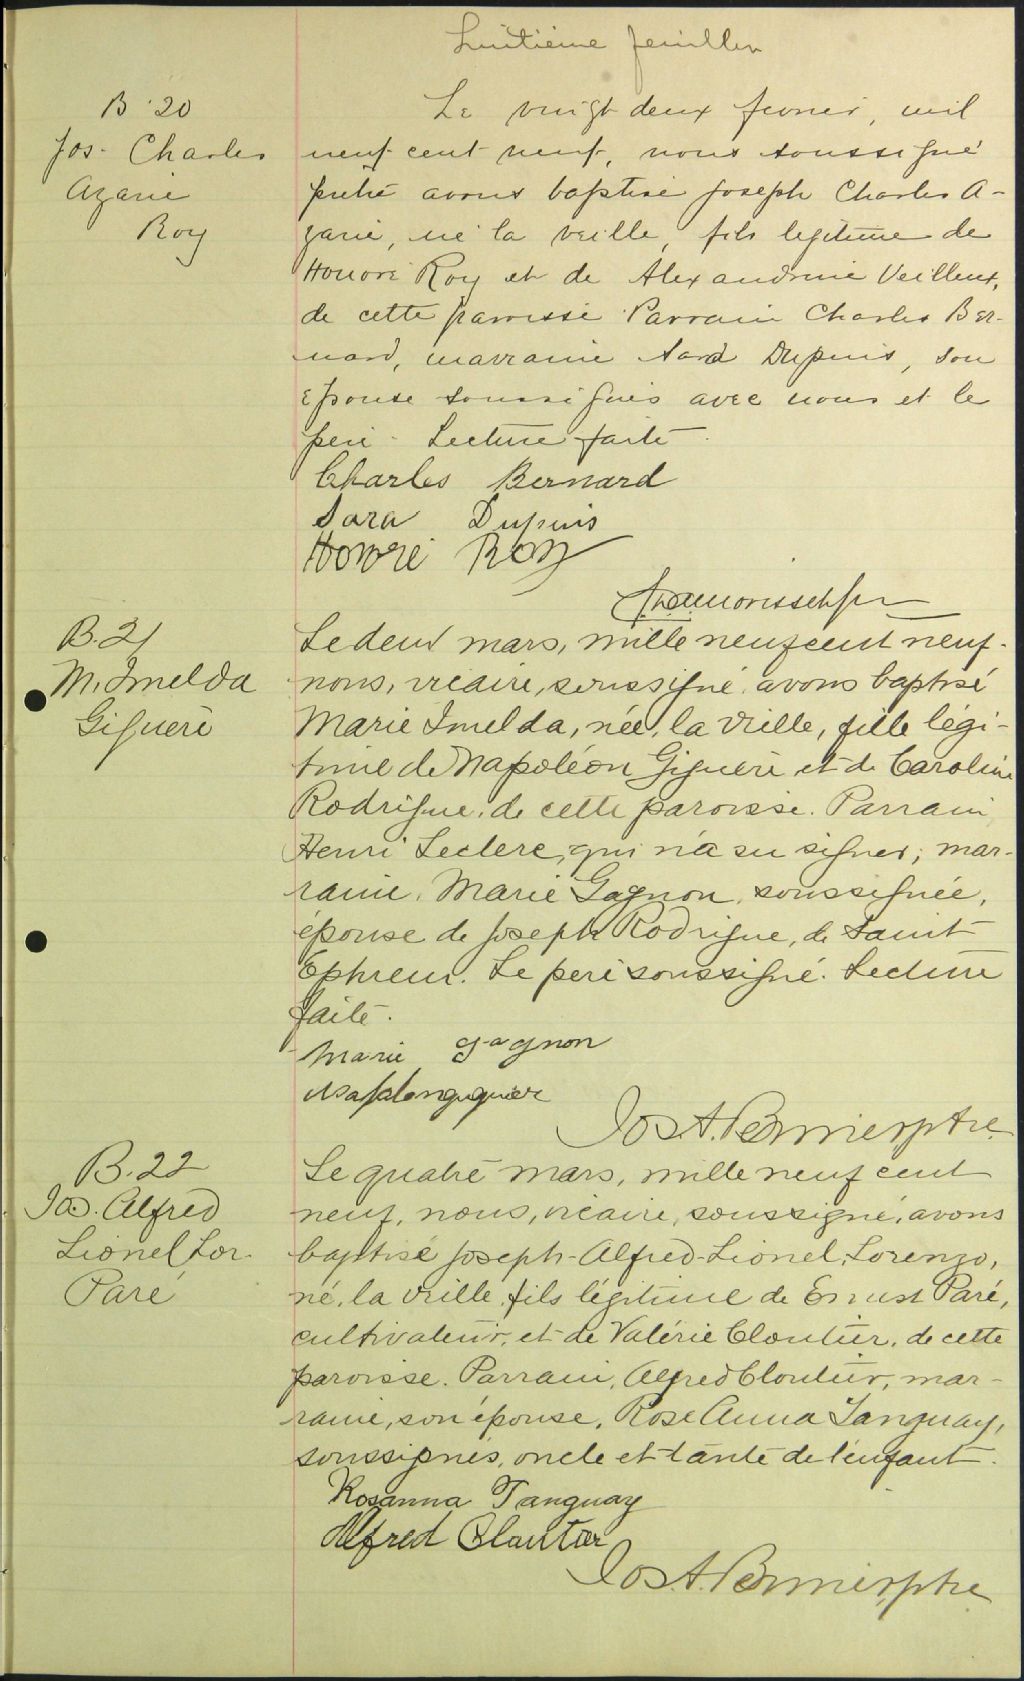 Huitième feuillet
B. 20
Jos. Charles
Azarie
Roy
Le vingt deux fevrier, mil
neuf cent neuf, nous soussigné
prêtre avons baptisé Joseph Charles A-
zarie, né la veille, fils legitime de
Honoré Roy et de Alexandrine Veilleux,
de cette paroisse Parrain Charles Ber-
nard, marraine Sara Dupuis, son
epouse soussignés avec nous et le
père - Lecture faite -
Charles Bernard
Sara Dupuis
Honoré Roy
B. 21
M. Imelda
Giguère
Le deux mars, mille neuf cent neuf-
nous, vicaire, soussigné, avons baptisé
Marie Imelda, née, la veille, fille légi-
time de Napoléon Giguère et de Caroline
Rodrigue, de cette paroisse. Parrain,
Henri Leclerc, qui n'a su signer; mar-
raine, Marie Gagnon, soussignée,
épouse de Joseph Rodrigue, de Saint
Ephrem. Le père soussigné. Lecture
faite.
Marie Gagnon
Napoleon giguer
Jos. A. Bernier, ptre
B. 22
Jos. Alfred
Lionel Lor.
Paré
Le quatre mars, mille neuf cent
neuf, nous, vicaire, soussigné, avons
baptisé Joseph-Alfred-Lionel, Lorenzo,
né, la veille, fils légitime de Ernest Paré,
cultivateur, et de Valérie Cloutier, de cette
paroisse. Parrain, Alfred Cloutier, mar-
raine, son épouse, Rose Anna Tanguay,
soussignés, oncle et tante de l'enfant.
Rosanna Tanguay
Alfred Cloutier
Jos. A. Bernier, ptre